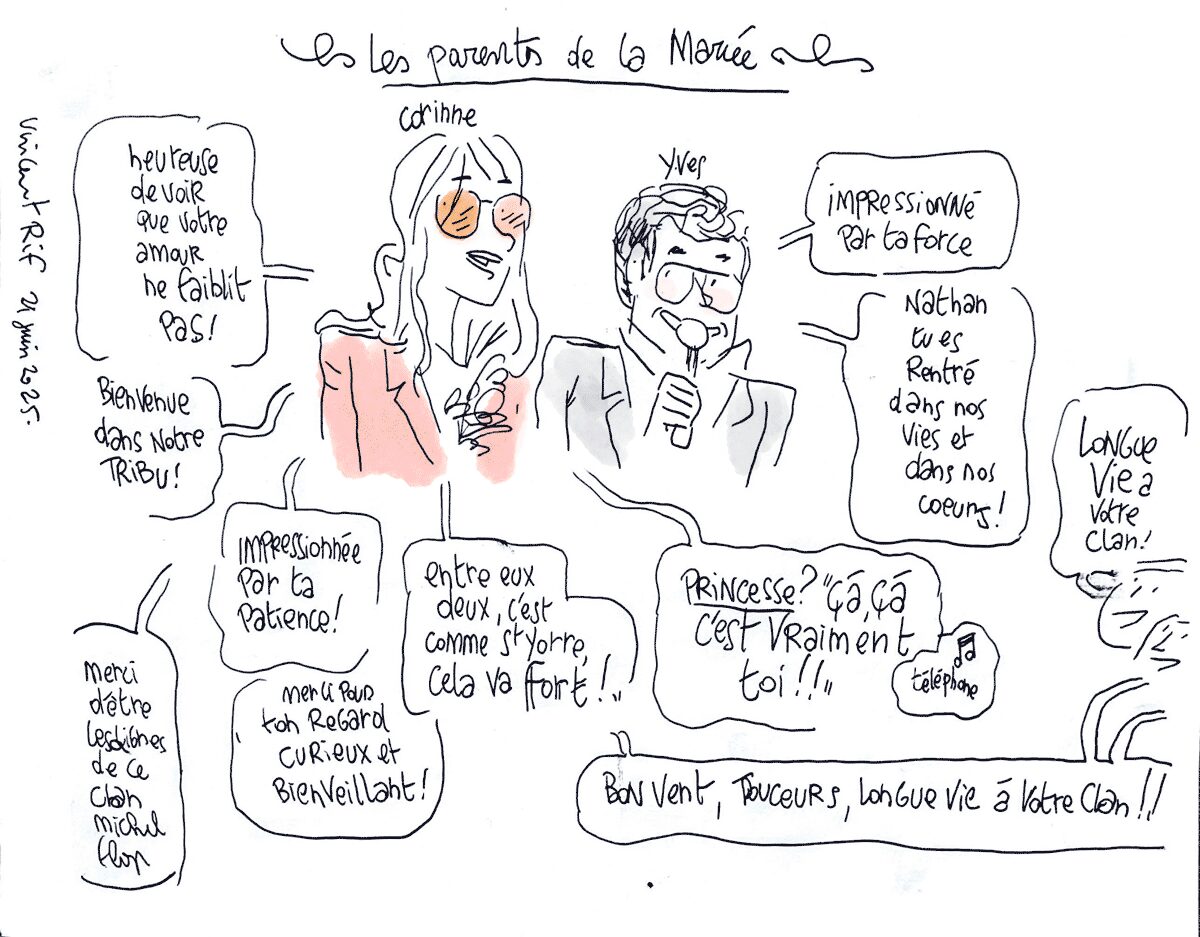 Les parents de la Mariée
corinne
Yves
Vincent Rif 21 juin 2025.
heureuse
de voir
que votre
amour
ne faiblit
pas!
Bienvenue
dans notre
TRIBU!
IMPRESSIONNÉE
par ta
patience!
merci
d'être
les dignes
de ce
clan
michel
merci pour
ton regard
curieux et
Bienveillant!
entre eux
deux, c'est
comme St Yorre,
cela va fort!"
IMPRESSIONNÉ
par ta force
Nathan
tu es
Rentré
dans nos
vies et
dans nos
coeurs!
PRINCESSE? "Çá, çá
c'est VRAIMENT
toi!!"
téléphone
LONGUE
Vie à
votre
clan!
Bon vent, Douceurs, longue vie à votre clan!!